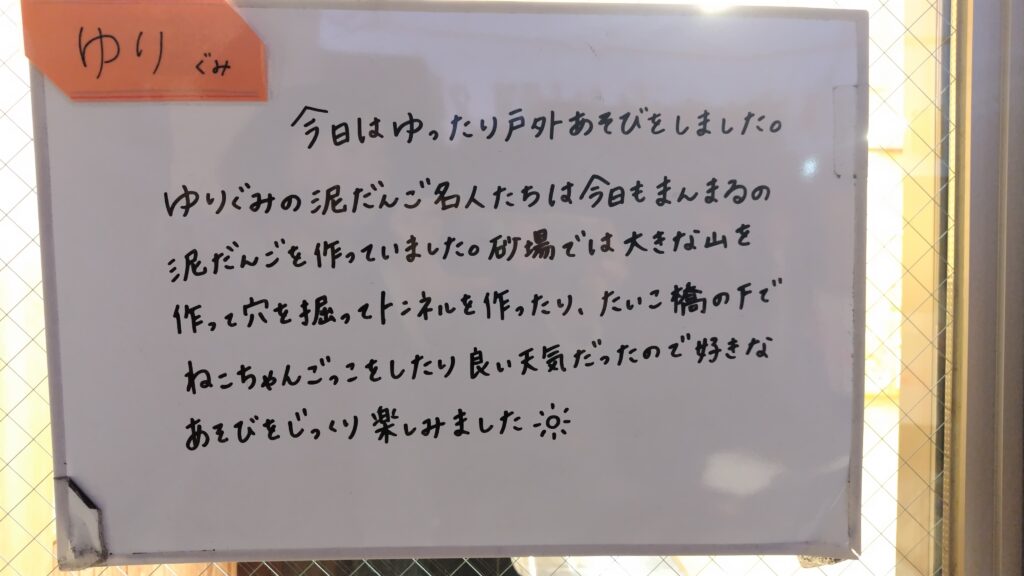 ゆり ぐみ
今日はゆったり戸外あそびをしました。
ゆりぐみの泥だんご名人たちは今日もまんまるの
泥だんごを作っていました。砂場では大きな山を
作って穴を掘ってトンネルを作ったり、たいこ橋の下で
ねこちゃんごっこをしたり良い天気だったので好きな
あそびをじっくり楽しみました☀